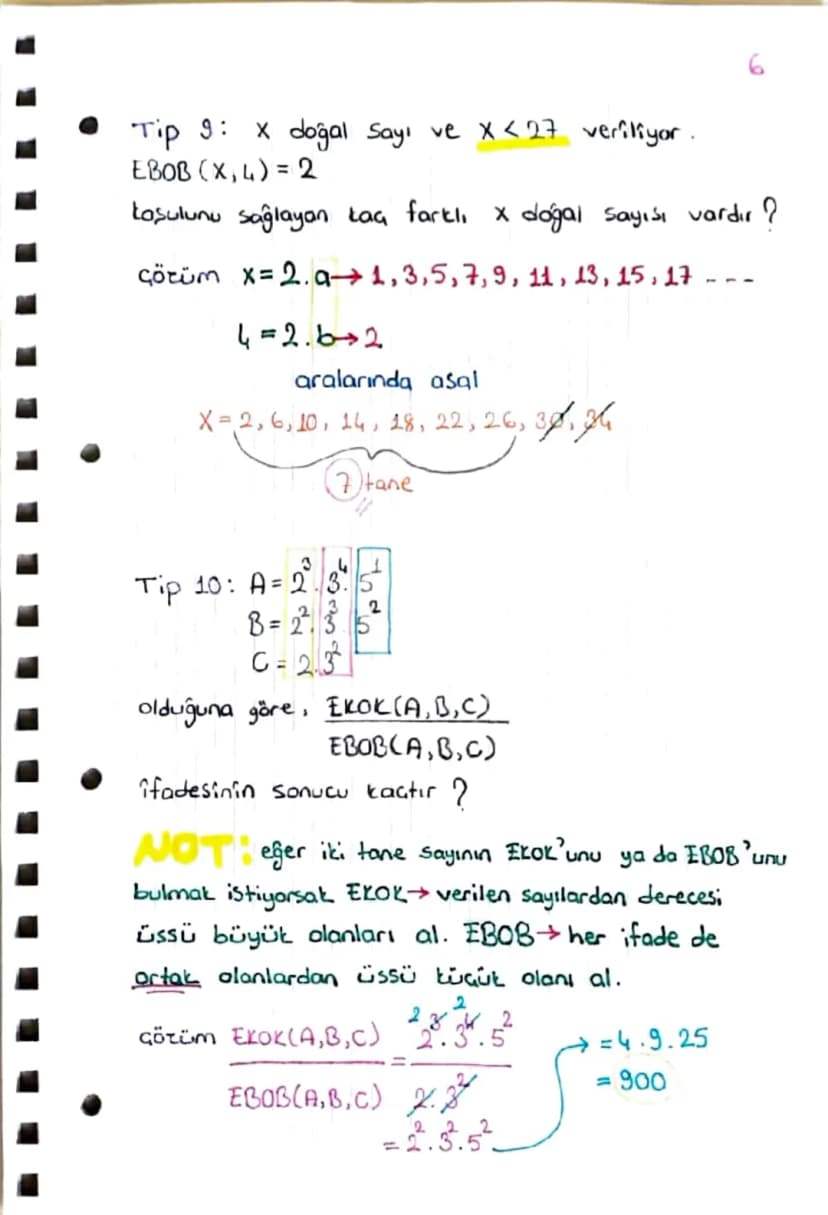 6
Tip 9: x doğal sayı ve x < 27 veriliyor.
EBOB (x, 4) = 2
koşulunu sağlayan kaç farklı x doğal sayısı vardır?
Çözüm x = 2.a → 1, 3, 5, 7, 9, 11, 13, 15, 17 ----
4 = 2.b → 2
aralarında asal
x = 2, 6, 10, 14, 18, 22, 26, 30, 34
7 tane
Tip 10: A = 2³. 3⁴. 5¹
B = 2². 3³ 5²
C = 2.3²
olduğuna göre, EKOK(A,B,C)
EBOB(A,B,C)
ifadesinin sonucu kaçtır?
NOT: eğer iki tane sayının EKOK'unu ya da EBOB'unu
bulmak istiyorsak EKOK → verilen sayılardan derecesi
üssü büyük olanları al. EBOB → her ifade de
ortak olanlardan üssü küçük olanı al.
Çözüm EKOK(A,B,C) = 2 2³. 2 3⁴. 5² → = 4.9.25
EBOB(A,B,C) 2.3² = 900
= 2². 3². 5²